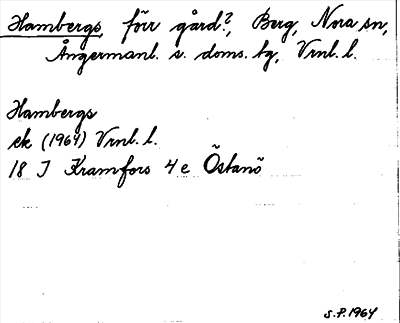 Hambergs, förr gård?, Berg, Nora sn,
Ångermanl. s. doms. tg, Vrnl. l.
Hambergs
ek (1964) Vrnl. l.
18 J Kramfors 4 e Östanö
S.P. 1964